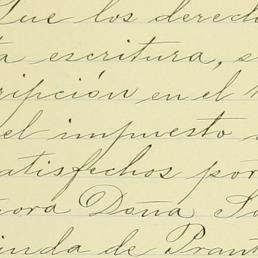 Que los derech
a escritura, s
ripción en el
el impuesto
atisfechos por
ora Doña
inda de Prant